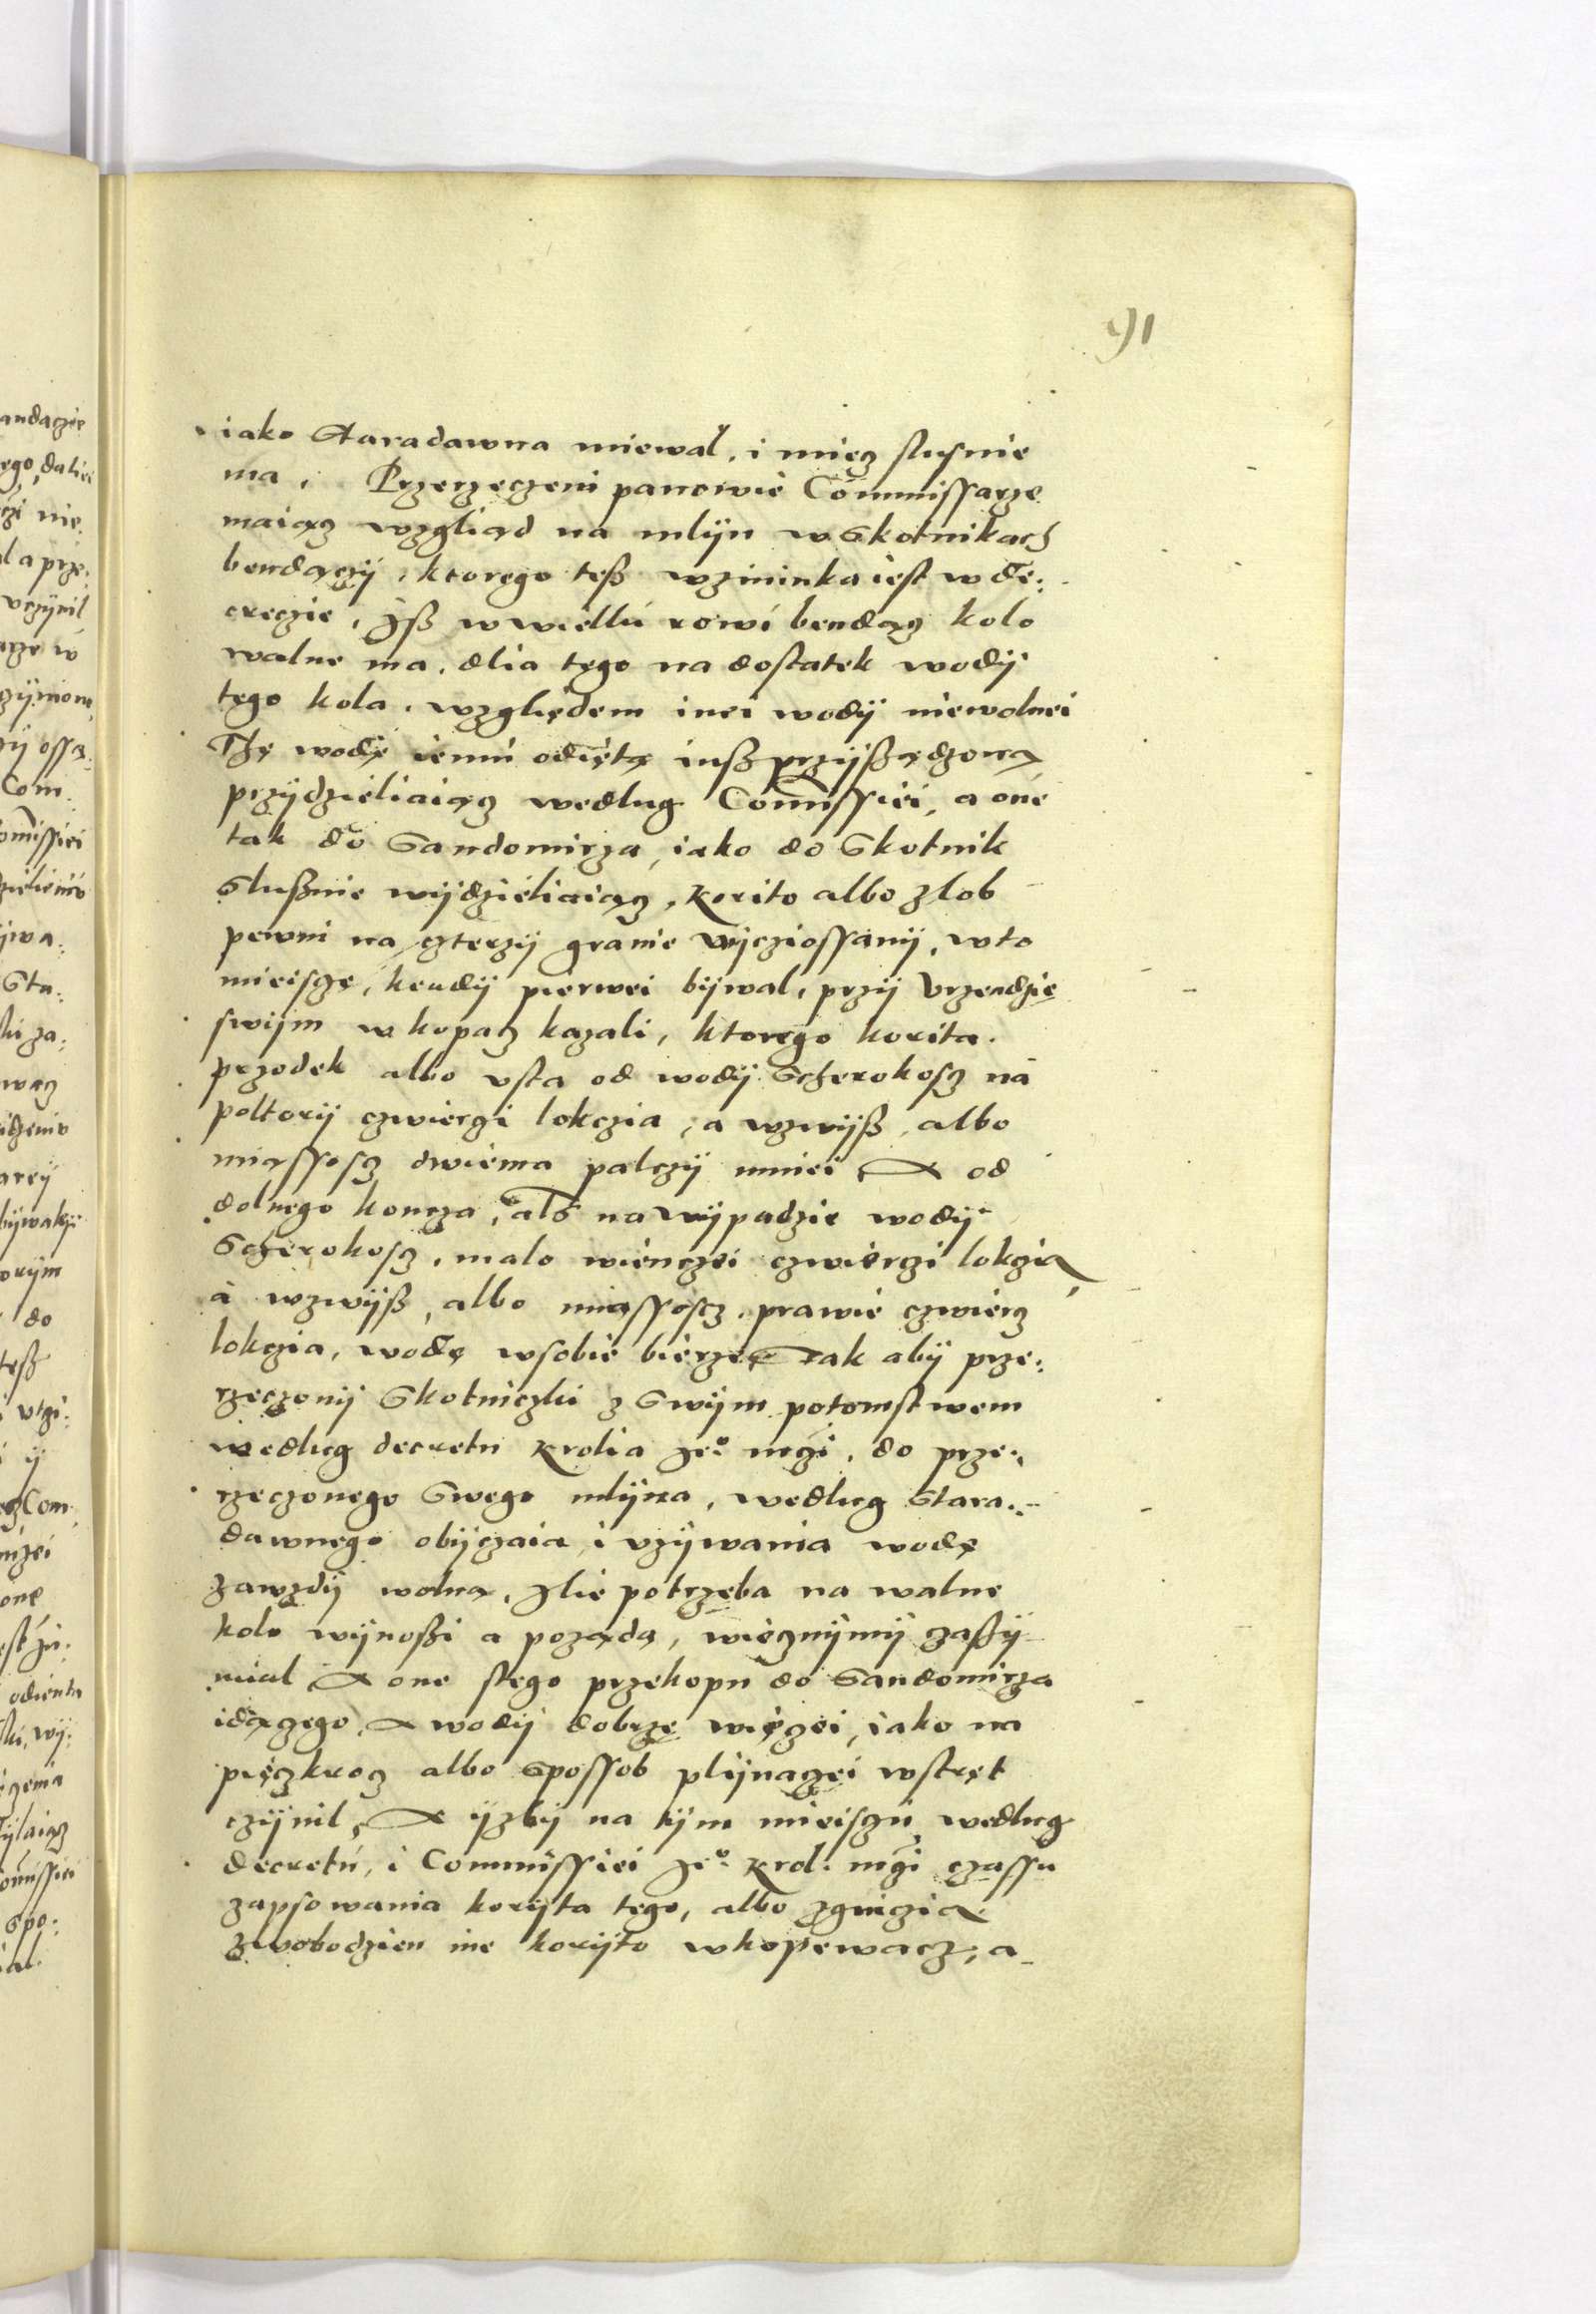 91
iako Staradawna miewal, i miecz slusnie
ma. Przerzeczeni panowie Commissarze
maiącz wzgliąd na mlijn w Skotnikach
bendączij, ktorego tesz wzminka iest w de:
creczie, Isz w wiellu rowi bendącz kolo
walne ma, dlia tego na dostatek wodij
tego kola, względem inei wodij niewolnei
Thę wodę iemu odiętą iusz przijsządzoną
przijdzieliaiącz wedlug Comissiei, a onę
tak do Sandomirza, iako do Skotnik
Slusznie wijdzieliaiącz, korito albo zlob
pewni na czterzij granie wijcziossanij, w to
mieiscze, kendij pierwei bijwal, przij Vrzendzie
swijm w kopacz kazali, ktorego korita
przodek albo vsta od wodij Scherokoscz na
poltorij czwierczi lokczia, a wzwijsz albo
miąssoscz dwiema palczij mniei, A od
dolnego koncza, albo na wijpadzie wodij
Scherokoscz, malo wienczei czwierczi lokczia
a wzwijsz, albo miąssoscz, prawie czwiercz
lokczia, wodę w sobie bierze, Tak abij prze:
rzeczonij Skotniczki z Swijm potomstwem
wedlug decretu Krolia Jeº mczi, do prze:
rzeczonego Swego mlijna, wedlug Stara:
dawnego obijczaia i vzijwania wodę
zawzdij wolną, Ilie potrzeba na walne
kolo wijnoszi a poząda, wiecznijmij czassij
mial A one stego przekopu do Sandomirza
idączego, A wodij dobrze więczei, iako na
pięczkrocz albo Spossob plijnączei wstręt
czijnil, A ijzbij na tijm mieisczu wedlug
decretu, i Commissiei Jeº Krol: mczi czassu
zapsowania korijta tego, albo zgniczia
Zwobodzien ine korijto wkopewacz, a